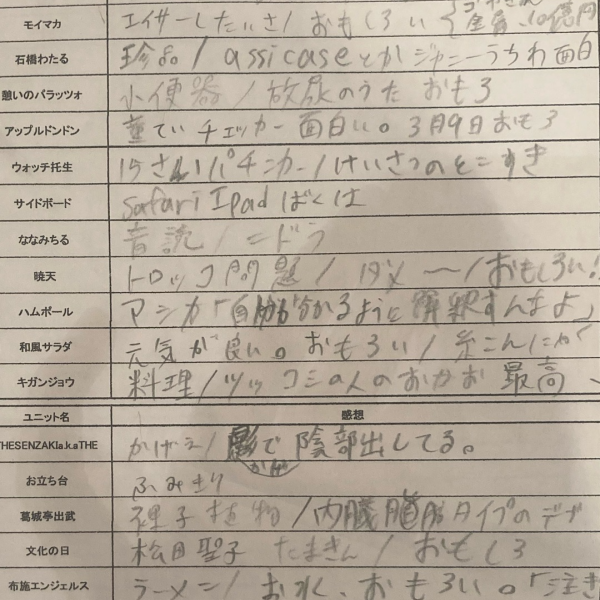 モイマカ エイサーしたいさ/おもしろい 10億円
石橋わたる 珍品/assicaseとかジャニーうちわ面白
憩いのパラッツォ 小便器/放尿のうた おもろ
アップルドンドン 重てい チェッカー 面白い。3月9日おもろ
ウォッチ托生 15さい パチンカー/けいさつのとこすき
サイドボード Safari Ipad ばくは
ななみちる 音読/ニドラ
暁天 トロッコ問題/ダメ〜/おもしろい!
ハムポール マシカ「自分も分かるように解釈すんなよ」
和風サラダ 元気が良い。おもろい/糸こんにゃく
キガンジョウ 料理/ツッコミの人のおかお最高、
ユニット名 感想
THESENZAKIa.k.aTHE かげえ/影で陰部出してる。
お立ち台 ふみきり
葛城亭出武 種子植物/内臓 タイプのデブ
文化の日 松田聖子 たまきん/おもしろ
布施エンジェルス ラーメン/お水、おもろい。「注き